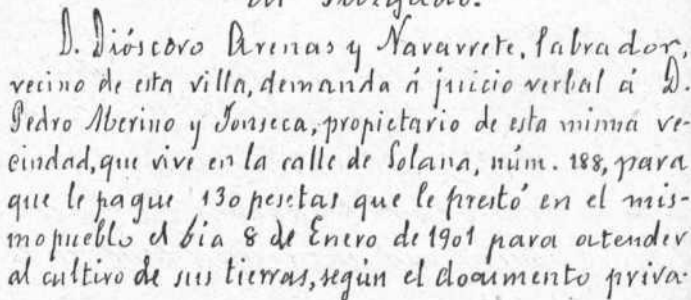 un Juzgado.
D. Dióscoro Arenas y Navarrete, labrador,
vecino de esta villa, demanda á juicio verbal á D.
Pedro Merino y Fonseca, propietario de esta misma ve-
cindad, que vive en la calle de Solana, núm. 188, para
que le pague 130 pesetas que le prestó en el mis-
mo pueblo el dia 8 de Enero de 1901 para atender
al cultivo de sus tierras, según el documento priva-